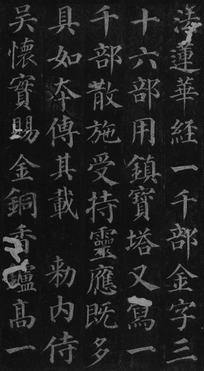 法蓮華經一千部金字三
十六部用鎮寶塔又寫一
千部散施受持靈應既多
具如本傳其載　勑內侍
吳懷實賜金銅香爐高一